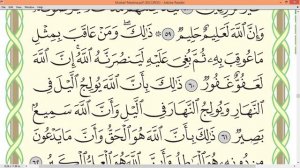 وَإِنَّ ٱللَّهَ لَعَلِيمٌ حَلِيمٌ ٥٩ ۞ ذَٰلِكَ وَمَنْ عَاقَبَ بِمِثْلِ
مَا عُوقِبَ بِهِۦ ثُمَّ بُغِىَ عَلَيْهِ لَيَنصُرَنَّهُ ٱللَّهُ ۗ إِنَّ ٱللَّهَ
لَعَفُوٌّ غَفُورٌ ٦٠ ذَٰلِكَ بِأَنَّ ٱللَّهَ يُولِجُ ٱلَّيْلَ فِى
ٱلنَّهَارِ وَيُولِجُ ٱلنَّهَارَ فِى ٱلَّيْلِ وَأَنَّ ٱللَّهَ سَمِيعٌۢ
بَصِيرٌ ٦١ ذَٰلِكَ بِأَنَّ ٱللَّهَ هُوَ ٱلْحَقُّ وَأَنَّ مَا يَدْعُونَ